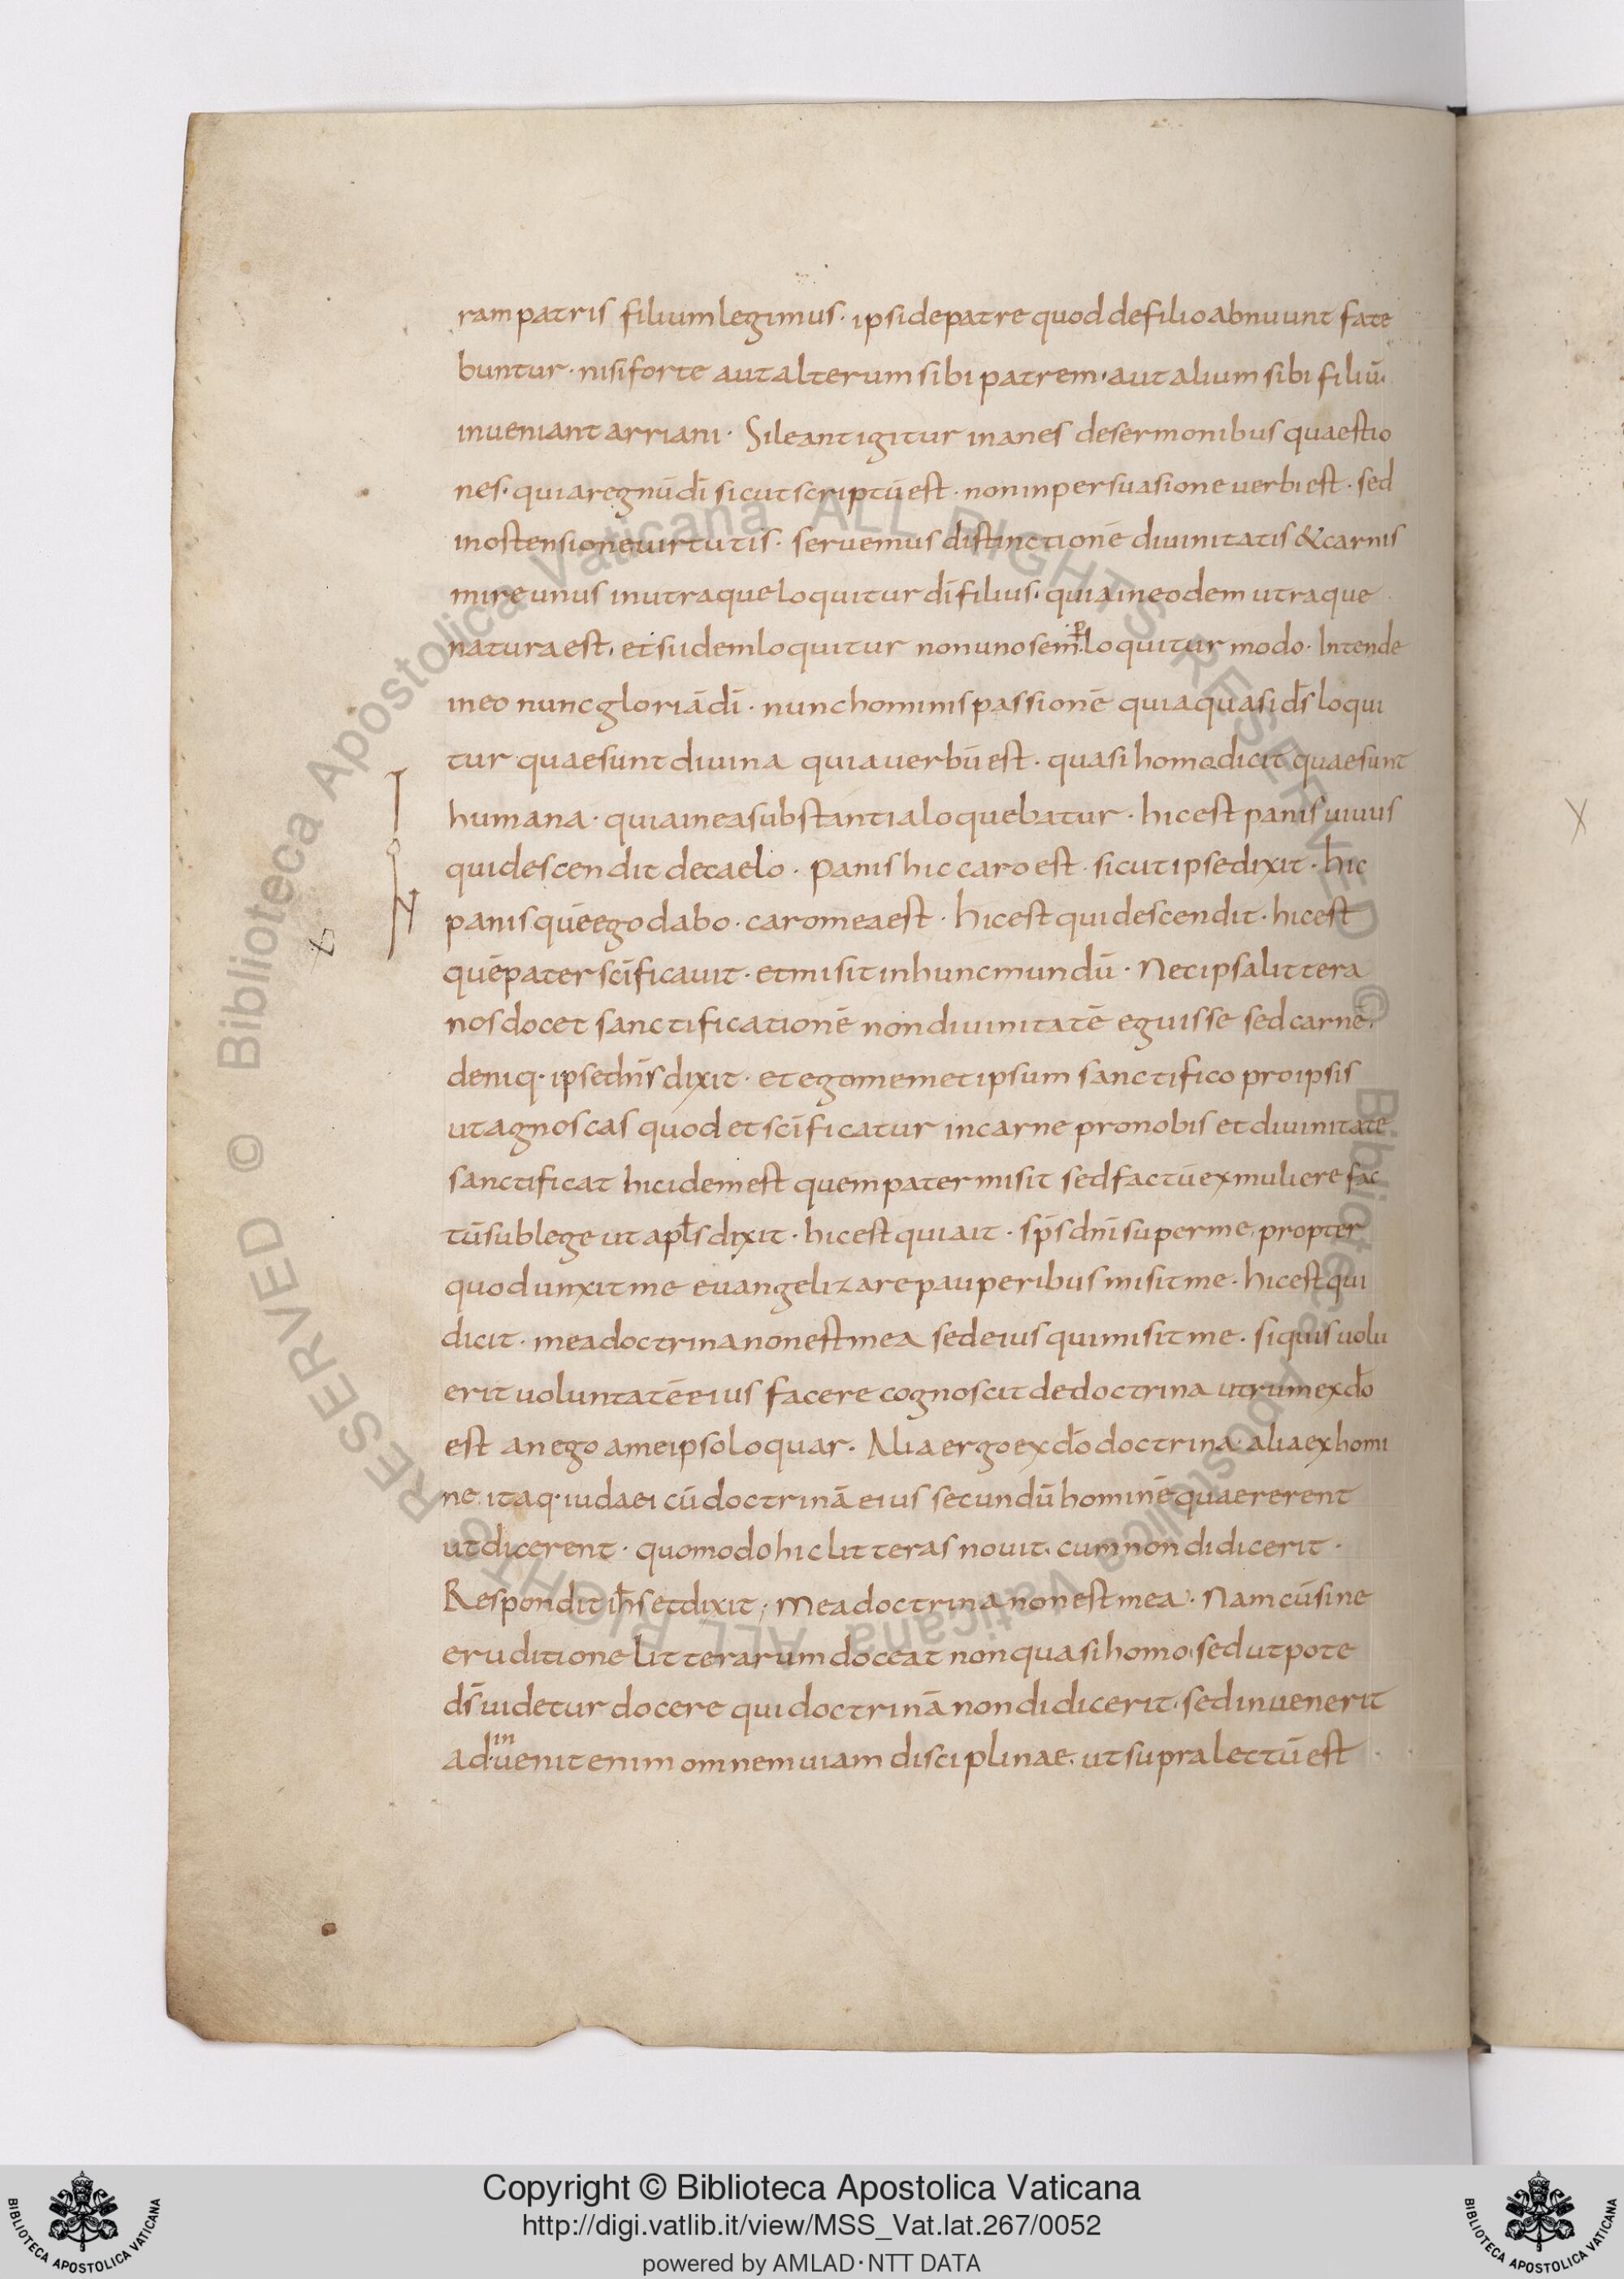 ram patris filium legimus · ipsi de patre quod de filio abnuunt fate
buntur · nisi forte aut alterum sibi patrem · aut alium sibi filiū ·
inueniant arriani · Sileant igitur inanes de sermonibus quaestio
nes · quia regnū dī sicut scriptū est · non in persuasione uerbi est · sed
in ostensione uirtutis · seruemus distinctionē diuinitatis & carnis
mire unus in utraque loquitur dī filius · quia in eodem utraque
natura est · et si idem loquitur non uno semꝑ loquitur modo · Intende
in eo nunc gloriā dī · nunc hominis passionē quia quasi d̄s loqui
tur quae sunt diuina quia uerbū est · quasi homo dicit quae sunt
humana · quia in ea substantia loquebatur · hic est panis uiuus
qui descendit de caelo · panis hic caro est · sicut ipse dixit · hic
panis quē ego dabo · caro mea est · hic est qui descendit · hic est
quē pater sc̄ificauit · et misit in hunc mundū · Nec ipsa littera
nos docet sanctificationē non diuinitatē eguisse sed carnē ·
deniq · ipse dn̄s dixit · et ego memet ipsum sanctifico pro ipsis
ut agnoscas quod et sc̄ificatur in carne pro nobis et diuinitate
sanctificat hic idem est quem pater misit sed factū ex muliere fac
tū sub lege ut apl̄s dixit · hic est qui ait · sp̄s dn̄i super me · propter
quod unxit me euangelizare pauperibus misit me · hic est qui
dicit · mea doctrina non est mea sed eius qui misit me · si quis uolu
erit uoluntatē eius facere cognoscit de doctrina utrum ex dō
est an ego a me ipso loquar · Alia ergo ex dō doctrina · alia ex homi
ne · itaq · iudaei cū doctrinā eius secundū hominē quaererent
ut dicerent · quomodo hic litteras nouit · cum non didicerit ·
Respondit ih̄s et dixit · Mea doctrina non est mea · Nam cū sine
eruditione litterarum doceat non quasi homo · sed utpote
d̄s uidetur docere qui doctrinā non didicerit · sed inuenerit
in
ad·uenit enim omnem uiam disciplinae · ut supra lectū est
Copyright © Biblioteca Apostolica Vaticana
http://digi.vatlib.it/view/MSS_Vat.lat.267/0052
powered by AMLAD · NTT DATA
BIBLIOTECA APOSTOLICA VATICANA
BIBLIOTECA APOSTOLICA VATICANA
© Biblioteca Apostolica Vaticana ALL RIGHTS RESERVED © Biblioteca Apostolica Vaticana ALL RIGHTS RESERVED